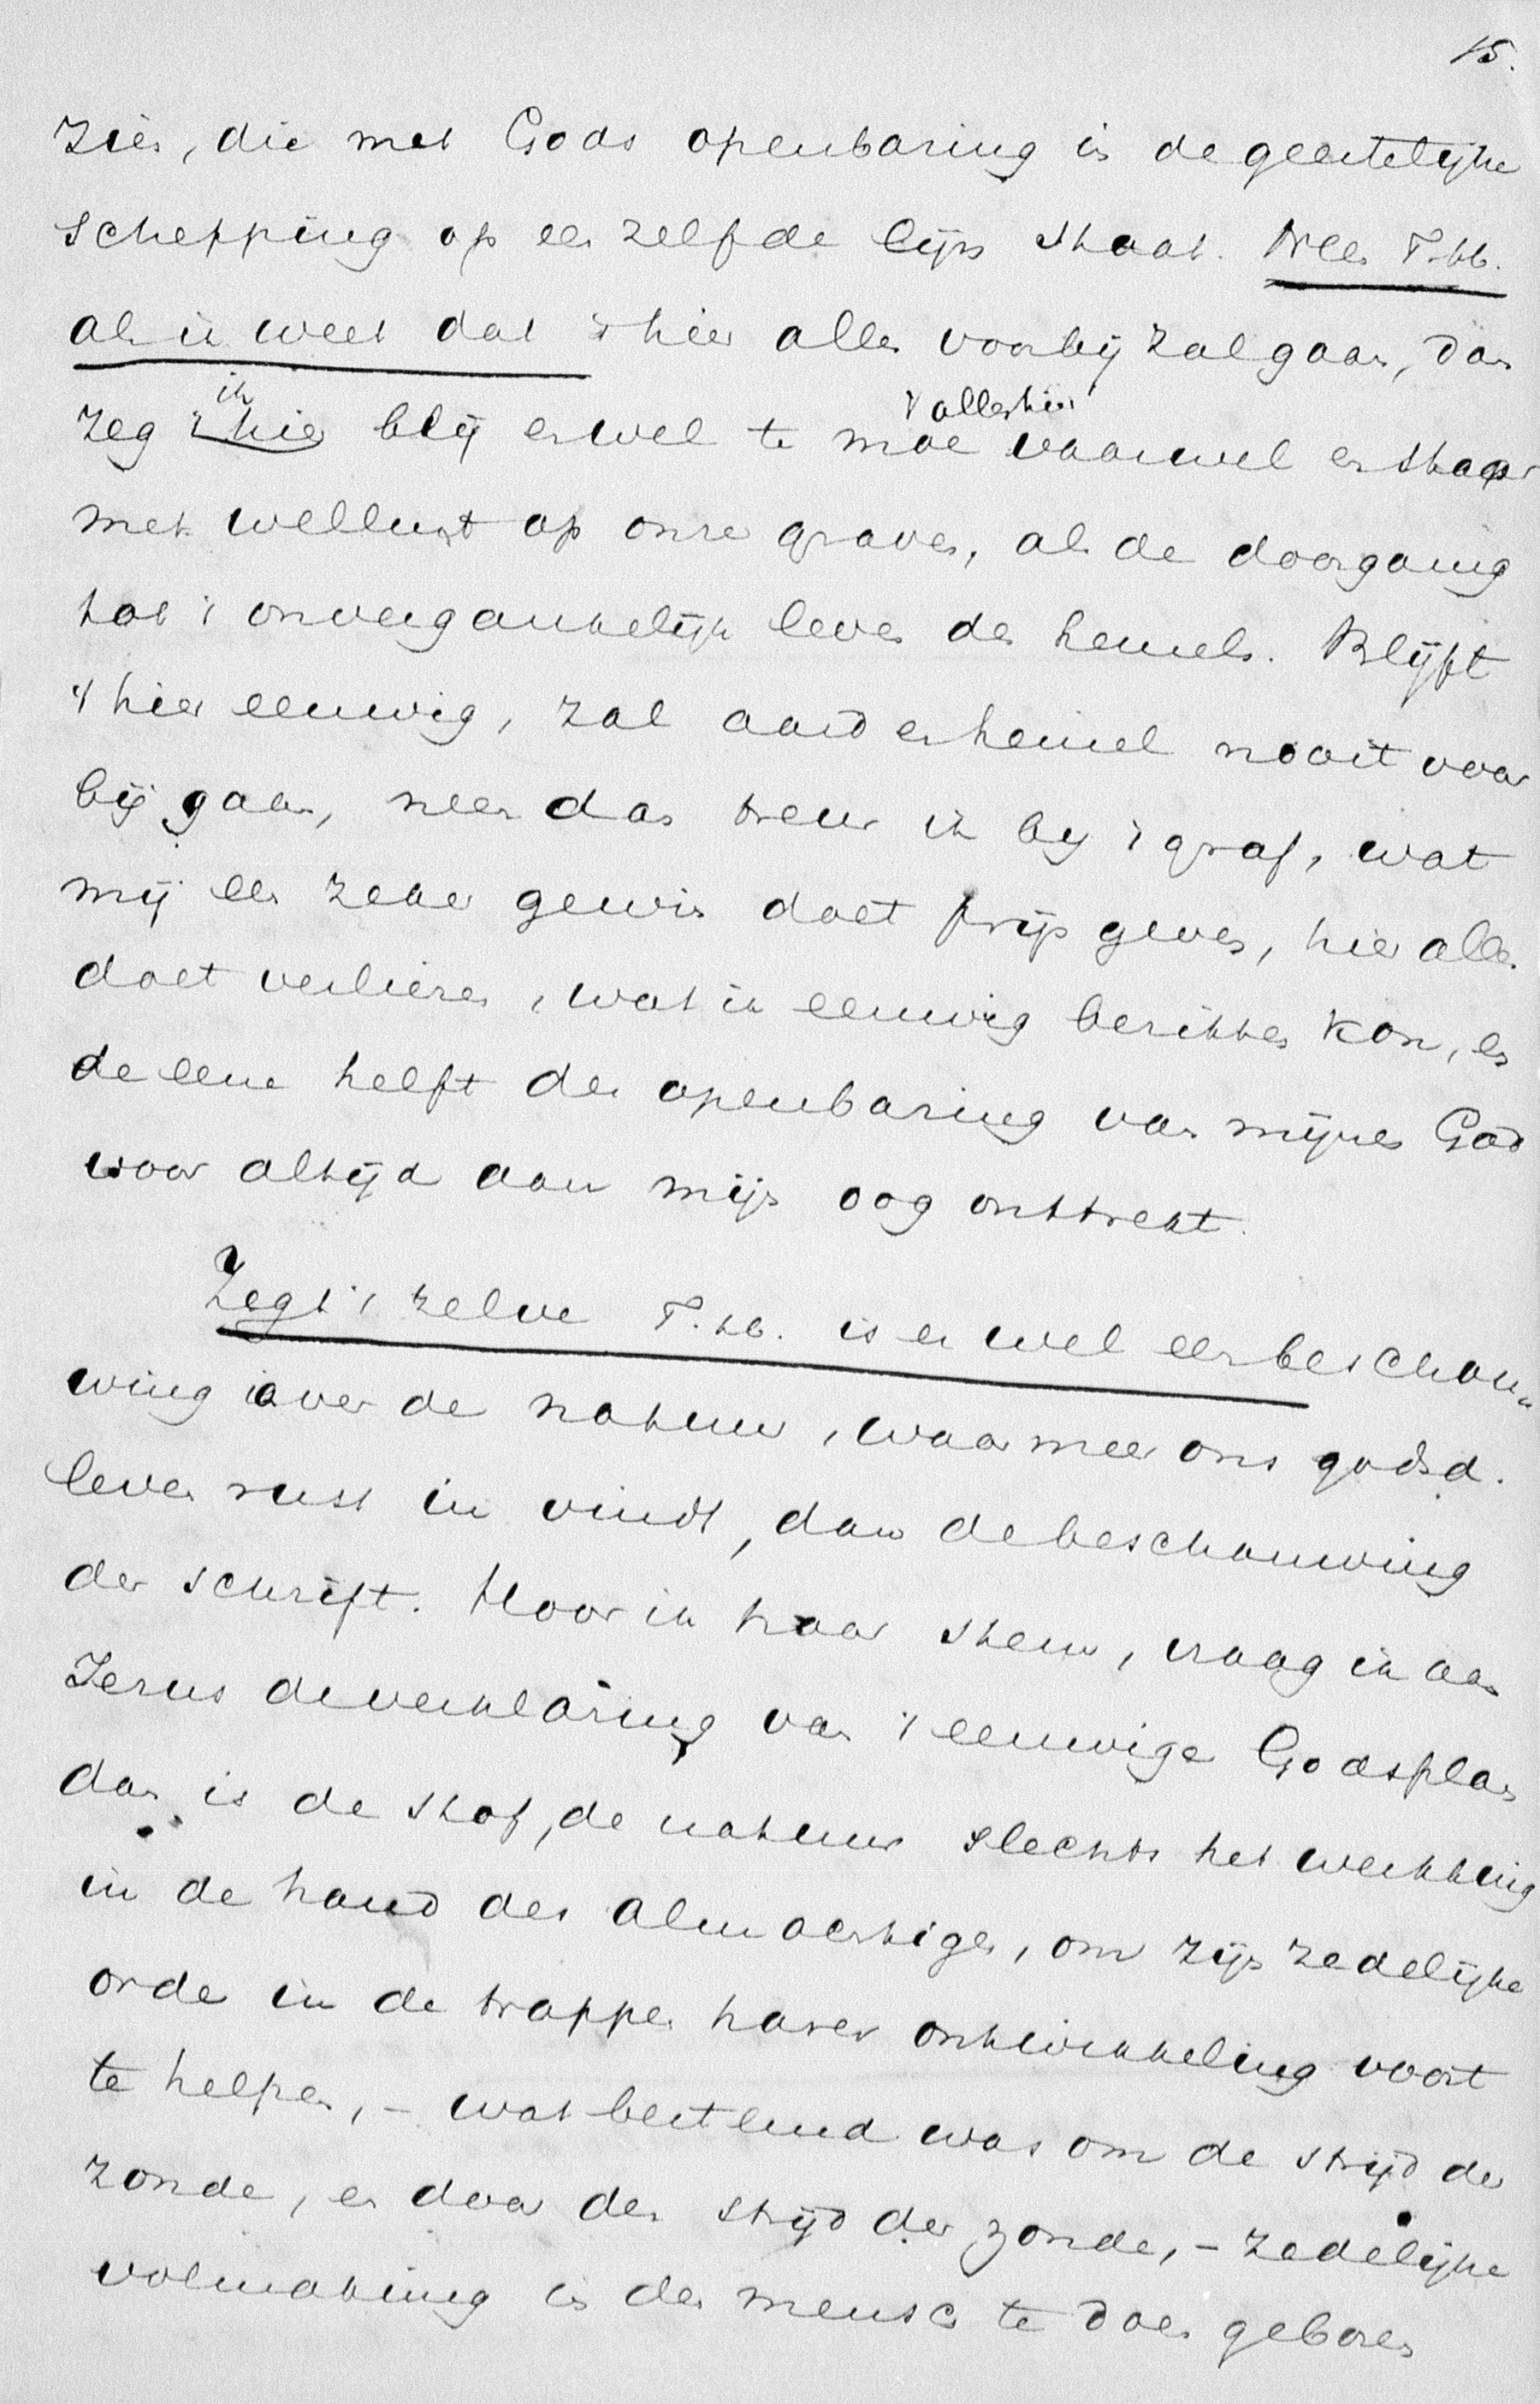 15.
zien, die met Gods openbaring in de geestelijke
schepping op een zelfde lijn staat. Neen T.hb.
als ik weet dat 't hier alles voorbij zal gaan, dan
zeg ik 't hier blij en wel te moe 't alles hier vaarwel en staar
met wellust op onze graven, als de doorgang
tot 't onvergankelijk leven des hemels. Blijft
't hier eeuwig, zal aard en hemel nooit voor
bij gaan, neen dan treur ik bij 't graf, wat
mij een zeker gewin doet prijs geven, hier alles
doet verliezen, wat ik eeuwig bezitten kon, en
de eene helft der openbaring van mijnen God
voor altijd aan mijn oog onttrekt.
Zegt 't zelve T.hb. is er wel een beschou„
wing over de natuur, waarmeer ons godsd.
leven rust in vindt, dan de beschouwing
der schrift. Hoor ik haar stem, vraag ik aan
Jezus de verklaring van 't eeuwige Godsplan
dan is de stof, de natuur slechts het werktuig
in de hand des Almachtigen, om zijn zedelijke
orde in de trappen harer ontwikkeling voort
te helpen, – wat bestemd was om de strijd der
zonde, en door den strijd der zonde, – zedelijke
volmaking in den mensch te doen geboren